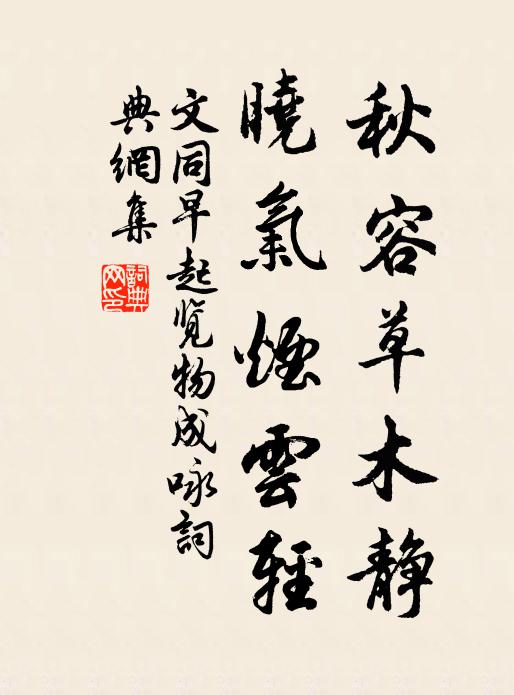 秋容草木静
曉氣煙雲輕
文同早起览物成咏詞
典網集
詞典网印